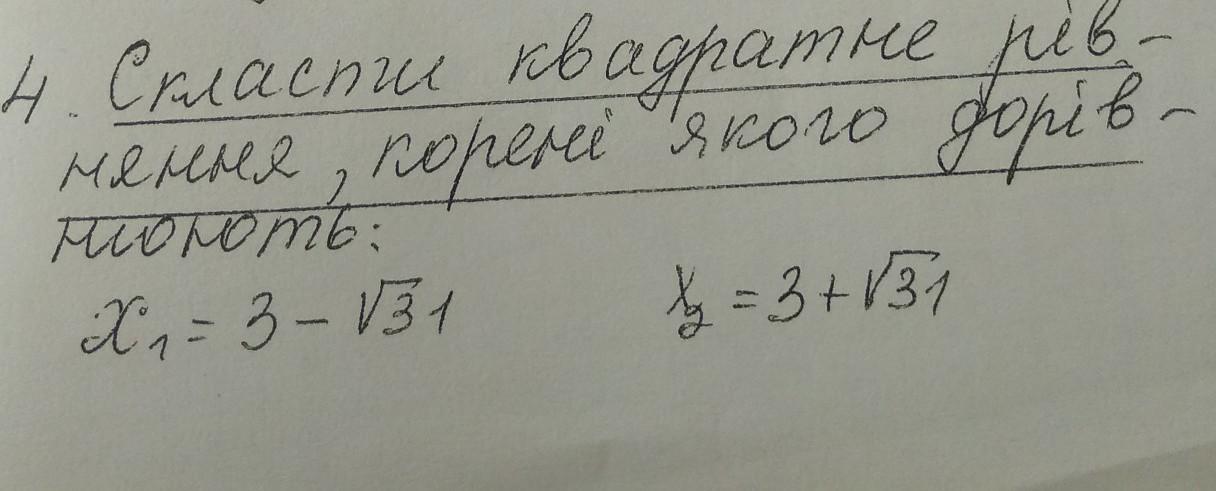 4. Скласти квадратне рів-
няння, корені якого дорів-
нюють:
x₁ = 3 - √31 x₂ = 3 + √31